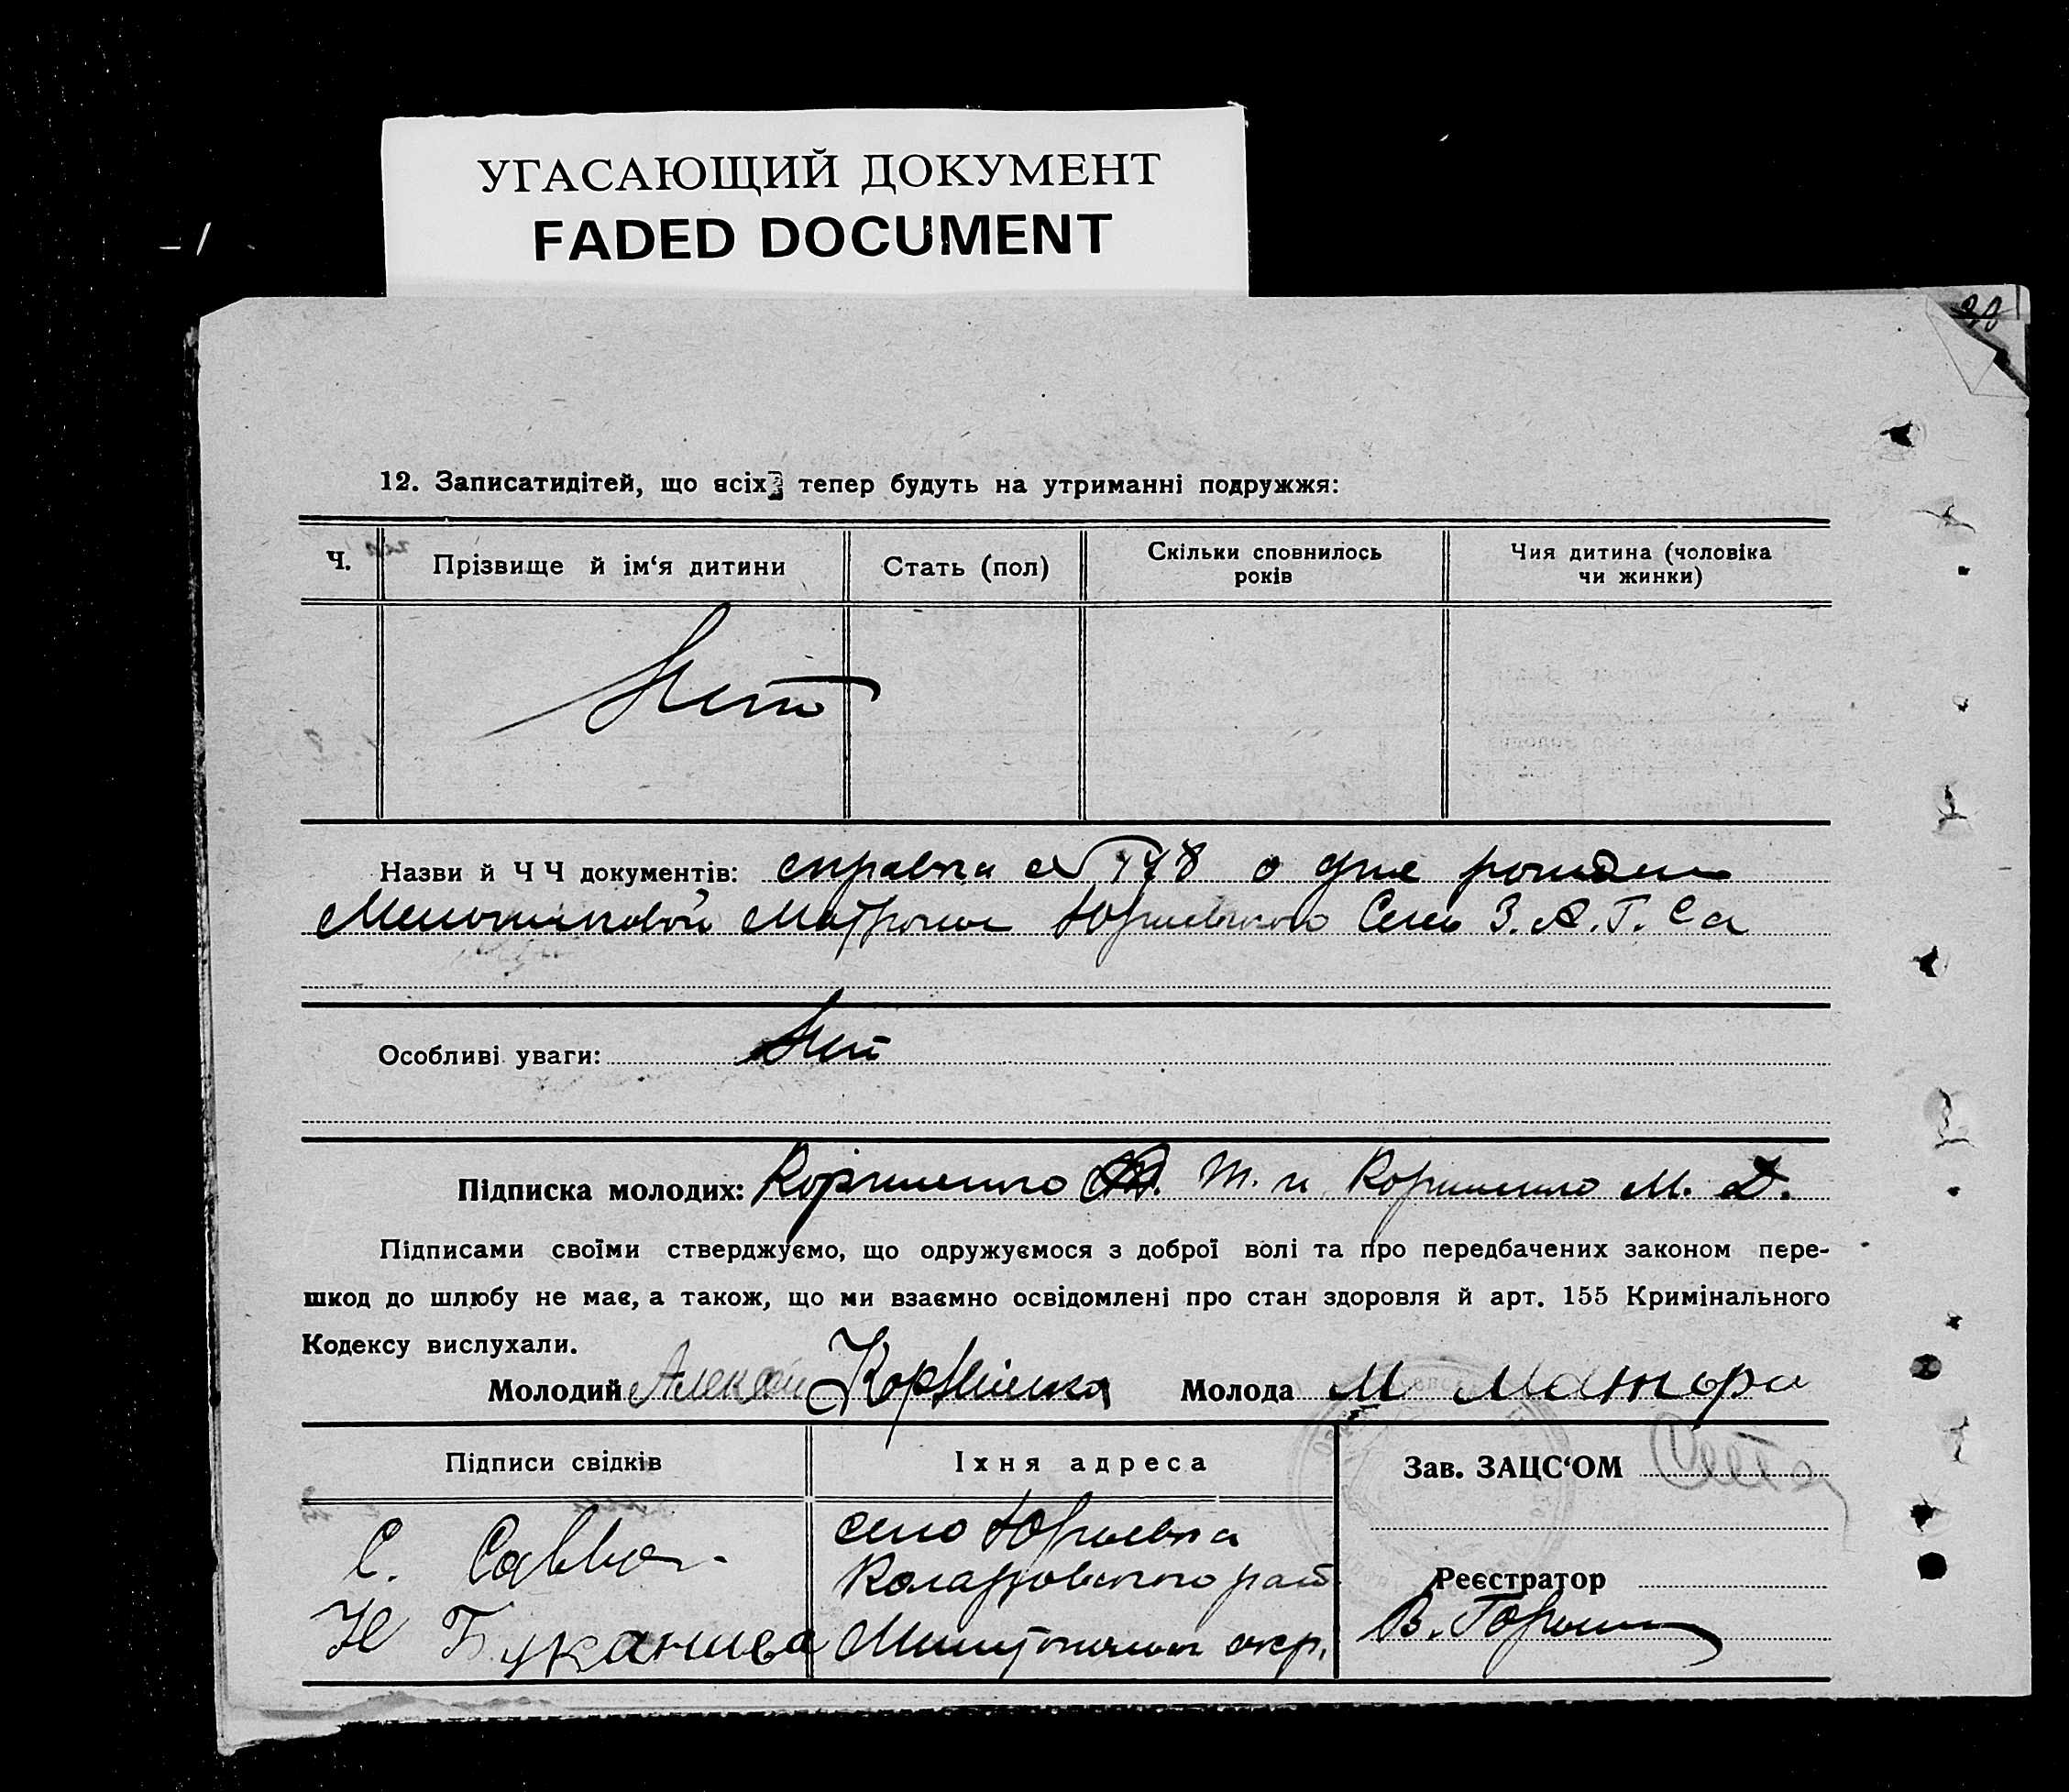 УГАСАЮЩИЙ ДОКУМЕНТ
FADED DOCUMENT
12. Записатидітей, що всіх тепер будуть на утриманні подружжя:
Ч. Прізвище й ім‘я дитини Стать (пол) Скільки сповнилось років Чия дитина (чоловіка чи жинки)
Нет
Назви й Ч Ч документів: справка № о дне рожден
Матроны Юрьевского Сель З.А.Г.Са
Особливі уваги: Нет
Підписка молодих: Корниенко Т. и Корниенко М. Д.
Підписами своїми стверджуємо, що одружуємося з доброї волі та про передбачених законом пере-
шкод до шлюбу не має, а також, що ми взаємно освідомлені про стан здоровля й арт. 155 Кримінального
Кодексу вислухали.
Молодий Алексей Молода М
Підписи свідків Іхня адреса Зав. ЗАЦС‘ОМ
С. Савва село Юрьевка
Коларовского рай. Реєстратор
Н Буканиева окр. В.